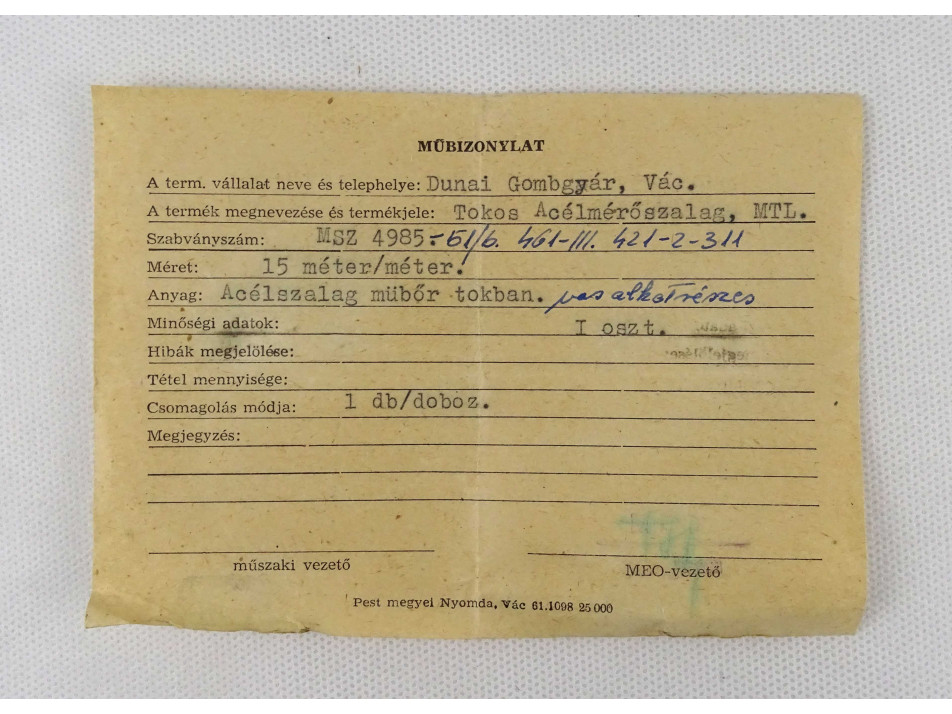 MŰBIZONYLAT
A term. vállalat neve és telephelye: Dunai Gombgyár, Vác.
A termék megnevezése és termékjele: Tokos Acélmérőszalag, MTL.
Szabványszám: MSZ 4985.-51/b. 461-III. 421-2-311
Méret: 15 méter/méter.
Anyag: Acélszalag műbőr tokban. vas alkatrészes
Minőségi adatok: I oszt.
Hibák megjelölése:
Tétel mennyisége:
Csomagolás módja: 1 db/doboz.
Megjegyzés:
műszaki vezető
MEO-vezető
Pest megyei Nyomda, Vác 61.1098 25 000